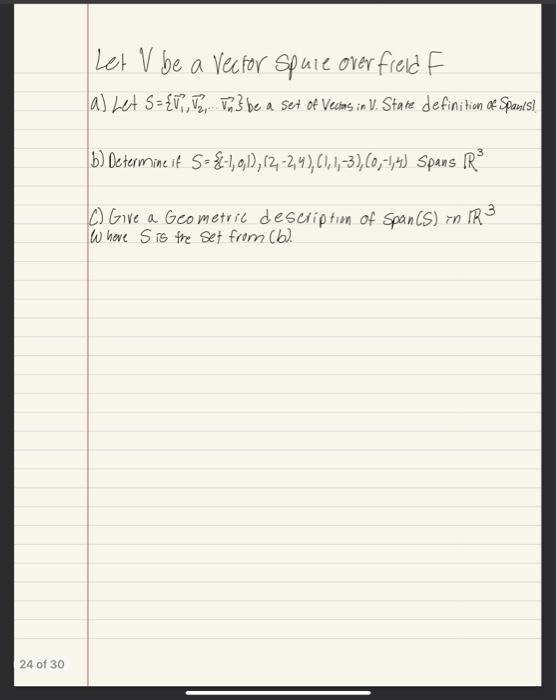 Let V be a vector space over field F
a) Let S={v⃗₁, v⃗₂, ... v⃗ₙ} be a set of vectors in V. State definition of Span(S)
b) Determine if S={(-1,0,1),(2,-2,4),(1,1,-3),(0,-1,4) Spans ℝ³
C) Give a Geometric description of span(S) in ℝ³
Where S is the set from (b).
24 of 30